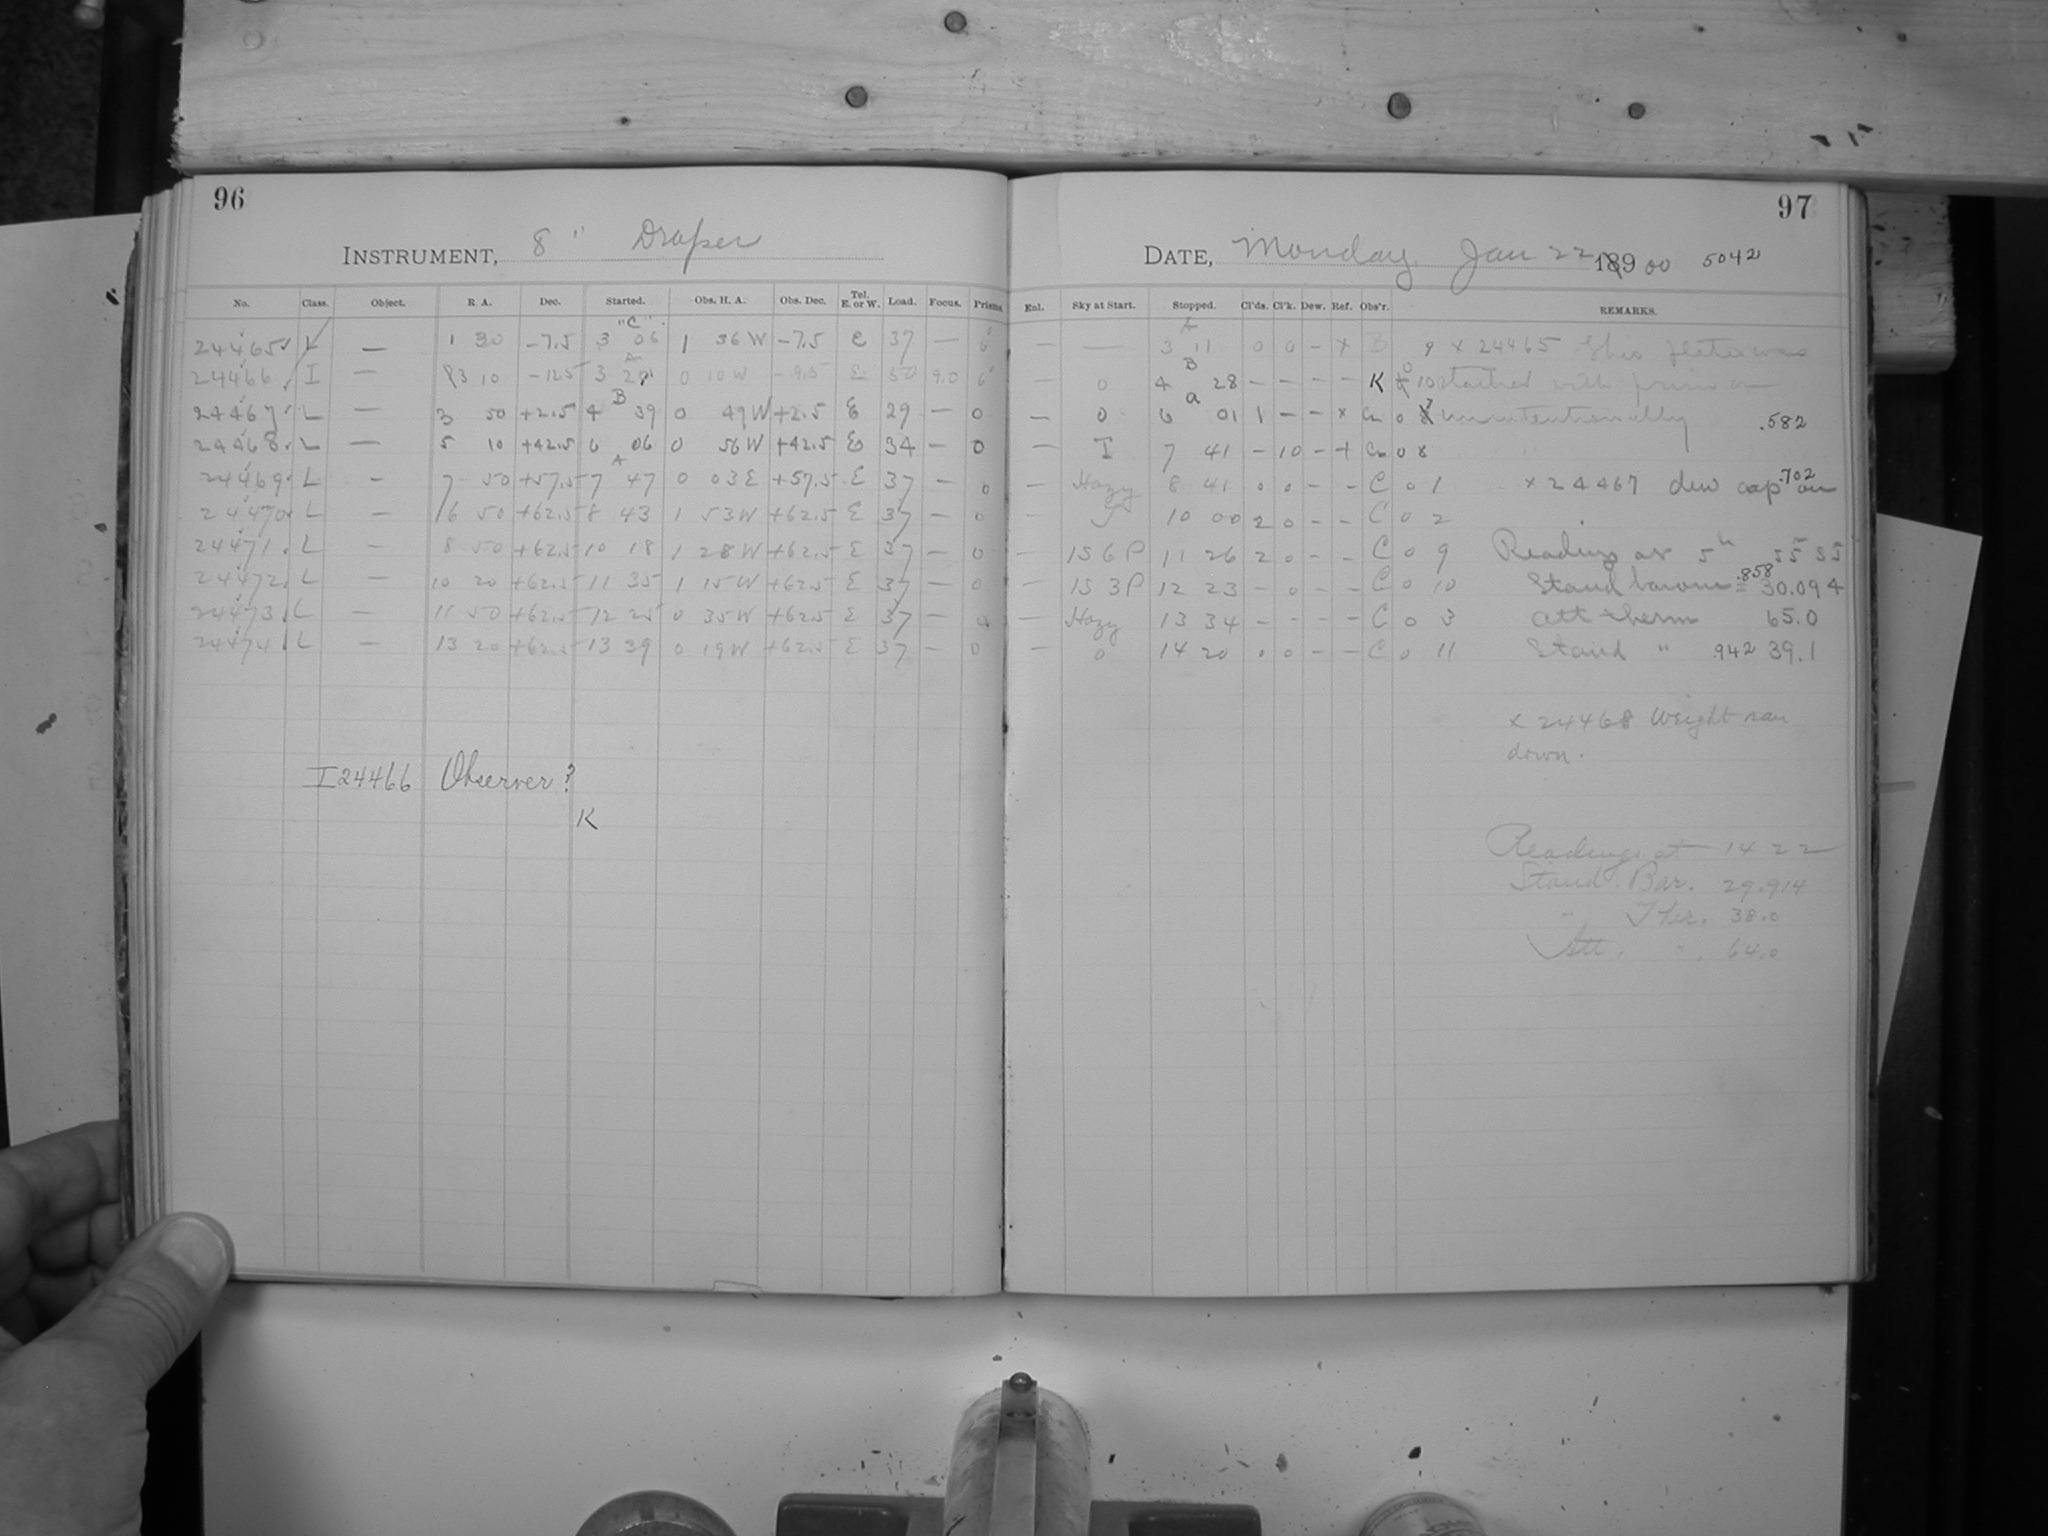 96
INSTRUMENT, 8" Draper
No. Class. Object. R. A. Dec. Started. Obs. H. A. Obs. Dec. Tel. E. or W. Load. Focus. Prisms.
"C"
24465 L — 1 30 -7.5 3 06 1 36 W -7.5 E 37 — 6
A
24466 I — 3 10 -12.5 3 0 10 W -9.5 E 50 9.0 6
B
24467 L — 3 50 +2.5 4 39 0 49 W +2.5 E 29 — 0
24468 L — 5 10 +42.5 6 06 0 56 W +42.5 E 34 — 0
A
24469 L — 7 50 +57.5 7 47 0 03 E +57.5 E 37 — 0
24470 L — 6 50 +62.5 8 43 1 53 W +62.5 E 37 — 0
24471 L — 8 50 +62.5 10 18 1 28 W +62.5 E 37 — 0
24472 L — 10 20 +62.5 11 35 1 15 W +62.5 E 37 — 0
24473 L — 11 50 +62.5 12 25 0 35 W +62.5 E 37 — 0
24474 L — 13 20 +62.5 13 39 0 19 W +62.5 E 37 — 0
I 24466 Observer?
K
97
DATE, Monday Jan 22 1900 5042
Enl. Sky at Start. Stopped. Cl'ds. Cl'k. Dew. Ref. Obs'r. REMARKS.
A
— — 3 11 0 0 — x B 9 x 24465 This plate was
B
— 0 4 28 — — — — K 10 started with prism on
a
— 0 6 01 1 — — x 0 unintentionally .582
— I 7 41 — 10 — + 0 8
— Hazy 8 41 0 0 — — C 0 1 x 24467 dew cap on .702
— 10 00 2 0 — — C 0 2
— 1S 6P 11 26 2 0 — — C 0 9 Reading at 5h 55 35
— 1S 3P 12 23 — 0 — — C 0 10 Stand barom .858 = 30.094
— Hazy 13 34 — — — — C 0 3 att therm 65.0
— 0 14 20 0 0 — — C 0 11 Stand " .942 39.1
x 24468 Weight ran
down.
Readings at 14 22
Stand. Bar. 29.914
" Ther. 38.0
Att. " 64.0